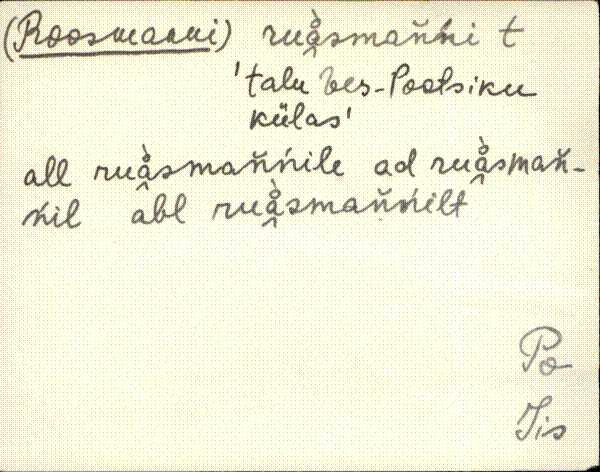 (Roosmanni) ruå̀smańńi t
'talu Ves-Pootsiku
külas'
all ruå̀smańńile ad ruå̀smań-
ńil abl ruå̀smańńilt
Po
Jis